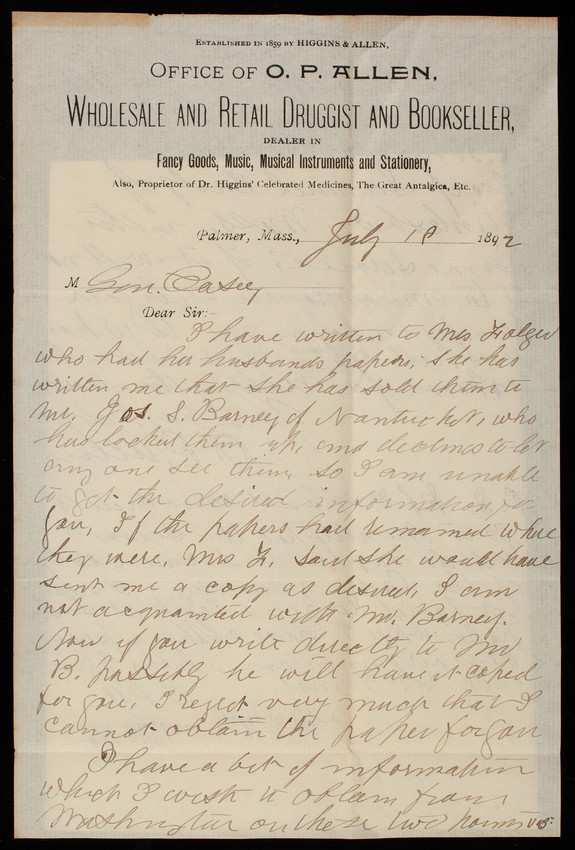 Established in 1859 by HIGGINS & ALLEN,
OFFICE OF O. P. ALLEN,
WHOLESALE AND RETAIL DRUGGIST AND BOOKSELLER,
DEALER IN
Fancy Goods, Music, Musical Instruments and Stationery,
Also, Proprietor of Dr. Higgins' Celebrated Medicines, The Great Antalgica, Etc.
Palmer, Mass., July 18 1892
M Gen. Casey
Dear Sir:-
I have written to Mrs Folger
who had her husbands papers, she has
written me that she has sold them to
Mr. Jos. S. Barney of Nantucket, who
has locked them up, and declines to let
any one see them, so I am unable
to get the desired information for
you, If the papers had remained where
they were, Mrs F. said she would have
sent me a copy as desired, I am
not acquainted with Mr. Barney.
Now if you write directly to Mr
B. possibly he will have it copied
for you, I regret very much that I
cannot obtain the paper for you
I have a bit of information
which I wish to obtain from
Washington on these two points vis: